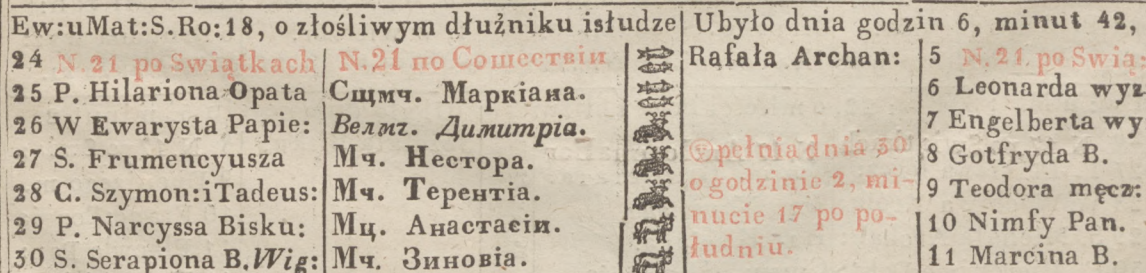 Ew:uMat:S.Ro:18, o złośliwym dłużniku isłudze Ubyło dnia godzin 6, minut 42,
24 N. 21 po Swiątkach N.21 по Сошествіи Rafała Archan: 5 N. 21. po Swią:
25 P. Hilariona Opata Сщмч. Маркіана. 6 Leonarda wyz
26 W Ewarysta Papie: Велмч. Димитріа. 7 Engelberta wy
27 S. Frumencyusza Мч. Нестора. pełnia dnia 30 8 Gotfryda B.
28 C. Szymon:iTadeus: Мч. Терентіа. o godzinie 2, mi- 9 Teodora męcz:
29 P. Narcyssa Bisku: Мц. Анастасіи. nucie 17 po po- 10 Nimfy Pan.
30 S. Serapiona B. Wig: Мч. Зиновіа. łudniu. 11 Marcina B.